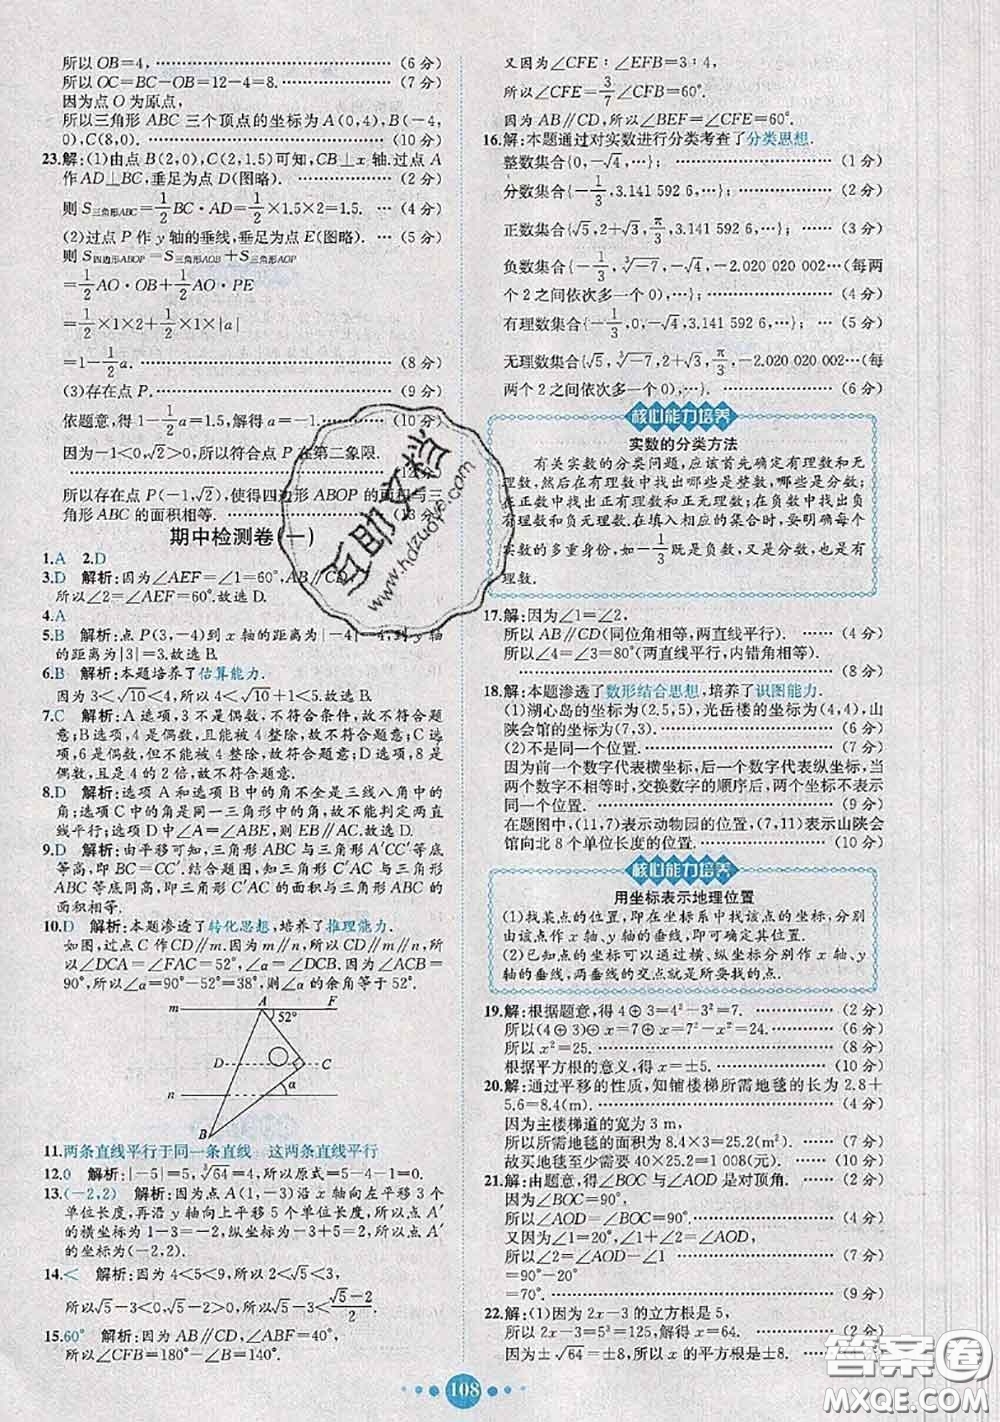 所以OB=4,(6分)
所以OC=BC-OB=12-4=8.(7分)
因为点O为原点,
所以三角形ABC三个顶点的坐标为A(0,4),B(-4,
0),C(8,0).(8分)
23.解:(1)由点B(2,0),C(2,1.5)可知,CB⊥x轴.过点A
作AD⊥BC,垂足为点D(图略).(2分)
则S三角形ABC=1/2BC·AD=1/2×1.5×2=1.5.(4分)
(2)过点P作y轴的垂线,垂足为点E(图略).(5分)
则S四边形ABOP=S三角形AOB+S三角形AOP
=1/2AO·OB+1/2AO·PE
=1/2×1×2+1/2×1×|a|
=1-1/2a.(8分)
(3)存在点P.(9分)
依题意,得1-1/2a=1.5,解得a=-1.(10分)
因为-1<0,√2>0,所以符合点P在第二象限.
(12分)
所以存在点P(-1,√2),使得四边形ABOP的面积与三
角形ABC的面积相等.(13分)
期中检测卷(一)
1.A 2.D
3.D 解析:因为∠AEF=∠1=60°,AB∥CD,
所以∠2=∠AEF=60°.故选D.
4.A
5.B 解析:点P(3,-4)到x轴的距离为|-4|=4,到y轴
的距离为|3|=3.故选B.
6.B 解析:本题培养了估算能力.
因为3<√10<4,所以4<√10+1<5.故选B.
7.C 解析:A选项,3不是偶数,不符合条件,故不符合题
意;B选项,4是偶数,且能被4整除,故不符合题意;C选
项,6是偶数,但不能被4整除,故符合题意;D选项,8是
偶数,且是4的2倍,故不符合题意.
8.D 解析:选项A和选项B中的角不全是三线八角中的
角;选项C中的角是同一三角形中的角,故不能判定两直
线平行;选项D中∠A=∠ABE,则EB∥AC.故选D.
9.D 解析:由平移可知,三角形ABC与三角形A'CC'等底
等高,即BC=CC'.结合题图,知三角形C'AC与三角形
ABC等底同高,即三角形C'AC的面积与三角形ABC的
面积相等.故选D.
10.D 解析:本题渗透了转化思想,培养了推理能力.
如图,过点C作CD∥m.因为m∥n,所以CD∥m∥n,所
以∠DCA=∠FAC=52°,∠α=∠DCB.因为∠ACB=
90°,所以∠α=90°-52°=38°,则∠α的余角等于52°.
m A F
52°
D C
α
n
B
11.两条直线平行于同一条直线 这两条直线平行
12.0 解析:因为|-5|=5,∛64=4,所以原式=5-4-1=0.
13.(-2,2) 解析:因为点A(1,-3)沿x轴向左平移3个
单位长度,再沿y轴向上平移5个单位长度,所以点A'
的横坐标为1-3=-2,纵坐标为-3+5=2,所以点A'
的坐标为(-2,2).
14.< 解析:因为4<5<9,所以2<√5<3,
所以√5-3<0,√5-2>0,所以√5-3<(√5-2)/2.
15.60° 解析:因为AB∥CD,∠ABF=40°,
所以∠CFB=180°-∠B=140°.
又因为∠CFE:∠EFB=3:4,
所以∠CFE=3/7∠CFB=60°.
因为AB∥CD,所以∠BEF=∠CFE=60°.
16.解:本题通过对实数进行分类考查了分类思想.
整数集合{0,-√4,…};(1分)
分数集合{-1/3,3.141 592 6,…};(2分)
正数集合{√5,2+√3,π/3,3.141 592 6,…};(3分)
负数集合{-1/3,∛-7,-√4,-2.020 002 002…(每两
个2之间依次多一个0),…};(4分)
有理数集合{-1/3,0,-√4,3.141 592 6,…};(5分)
无理数集合{√5,∛-7,2+√3,π/3,-2.020 002 002…(每
两个2之间依次多一个0),…}.(6分)
核心能力培养
实数的分类方法
有关实数的分类问题,应该首先确定有理数和无
理数,然后在有理数中找出哪些是整数,哪些是分数;
在正数中找出正有理数和正无理数;在负数中找出负
有理数和负无理数,在填入相应的集合时,要明确每个
实数的多重身份,如-1/3既是负数,又是分数,也是有
理数.
17.解:因为∠1=∠2,
所以AB∥CD(同位角相等,两直线平行).(4分)
所以∠4=∠3=80°(两直线平行,内错角相等).
(8分)
18.解:本题渗透了数形结合思想,培养了识图能力.
(1)湖心岛的坐标为(2.5,5),光岳楼的坐标为(4,4),山
陕会馆的坐标为(7,3).(6分)
(2)不是同一个位置.(7分)
因为前一个数字代表横坐标,后一个数字代表纵坐标,当
两个数字不相等时,交换数字的顺序以后,两个坐标不表示
同一个位置.(9分)
在题图中,(11,7)表示动物园的位置,(7,11)表示山陕会
馆向北8个单位长度的位置.(10分)
核心能力培养
用坐标表示地理位置
(1)找某点的位置,即在坐标系中找该点的坐标,分别
由该点作x轴、y轴的垂线,即可确定其位置.
(2)已知点的坐标可以通过横、纵坐标分别作x轴、y
轴的垂线,两垂线的交点就是所要找的点.
19.解:根据题意,得4⊕3=4²-3²=7.(2分)
所以(4⊕3)⊕x=7⊕x=7²-x²=24.(6分)
所以x²=25.(8分)
根据平方根的意义,得x=±5.(10分)
20.解:通过平移的性质,知铺楼梯所需地毯的长为2.8+
5.6=8.4(m).(4分)
因为主楼梯道的宽为3 m,
所以所需地毯的面积为8.4×3=25.2(m²).(7分)
故买地毯至少需要40×25.2=1 008(元).(10分)
21.解:由题意,得∠BOC与∠AOD是对顶角.(2分)
因为∠BOC=90°,
所以∠AOD=∠BOC=90°.(4分)
又因为∠1=20°,∠AOF=∠1+∠2,
所以∠2=∠AOD-∠1(7分)
=90°-20°
=70°.(9分)
22.解:(1)因为2x-3的立方根是5,
所以2x-3=5³=125,解得x=64.(2分)
因为±√64=±8,所以x的平方根是±8.
108
互助文稿
www.hdzuoye.com
答案圈
MXQE.COM